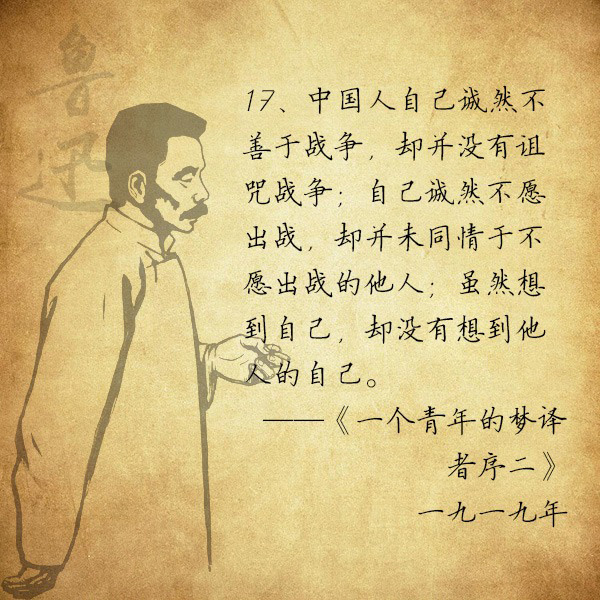 鲁迅
17、中国人自己诚然不
善于战争，却并没有诅
咒战争；自己诚然不愿
出战，却并未同情于不
愿出战的他人；虽然想
到自己，却没有想到他
人的自己。
——《一个青年的梦译
者序二》
一九一九年